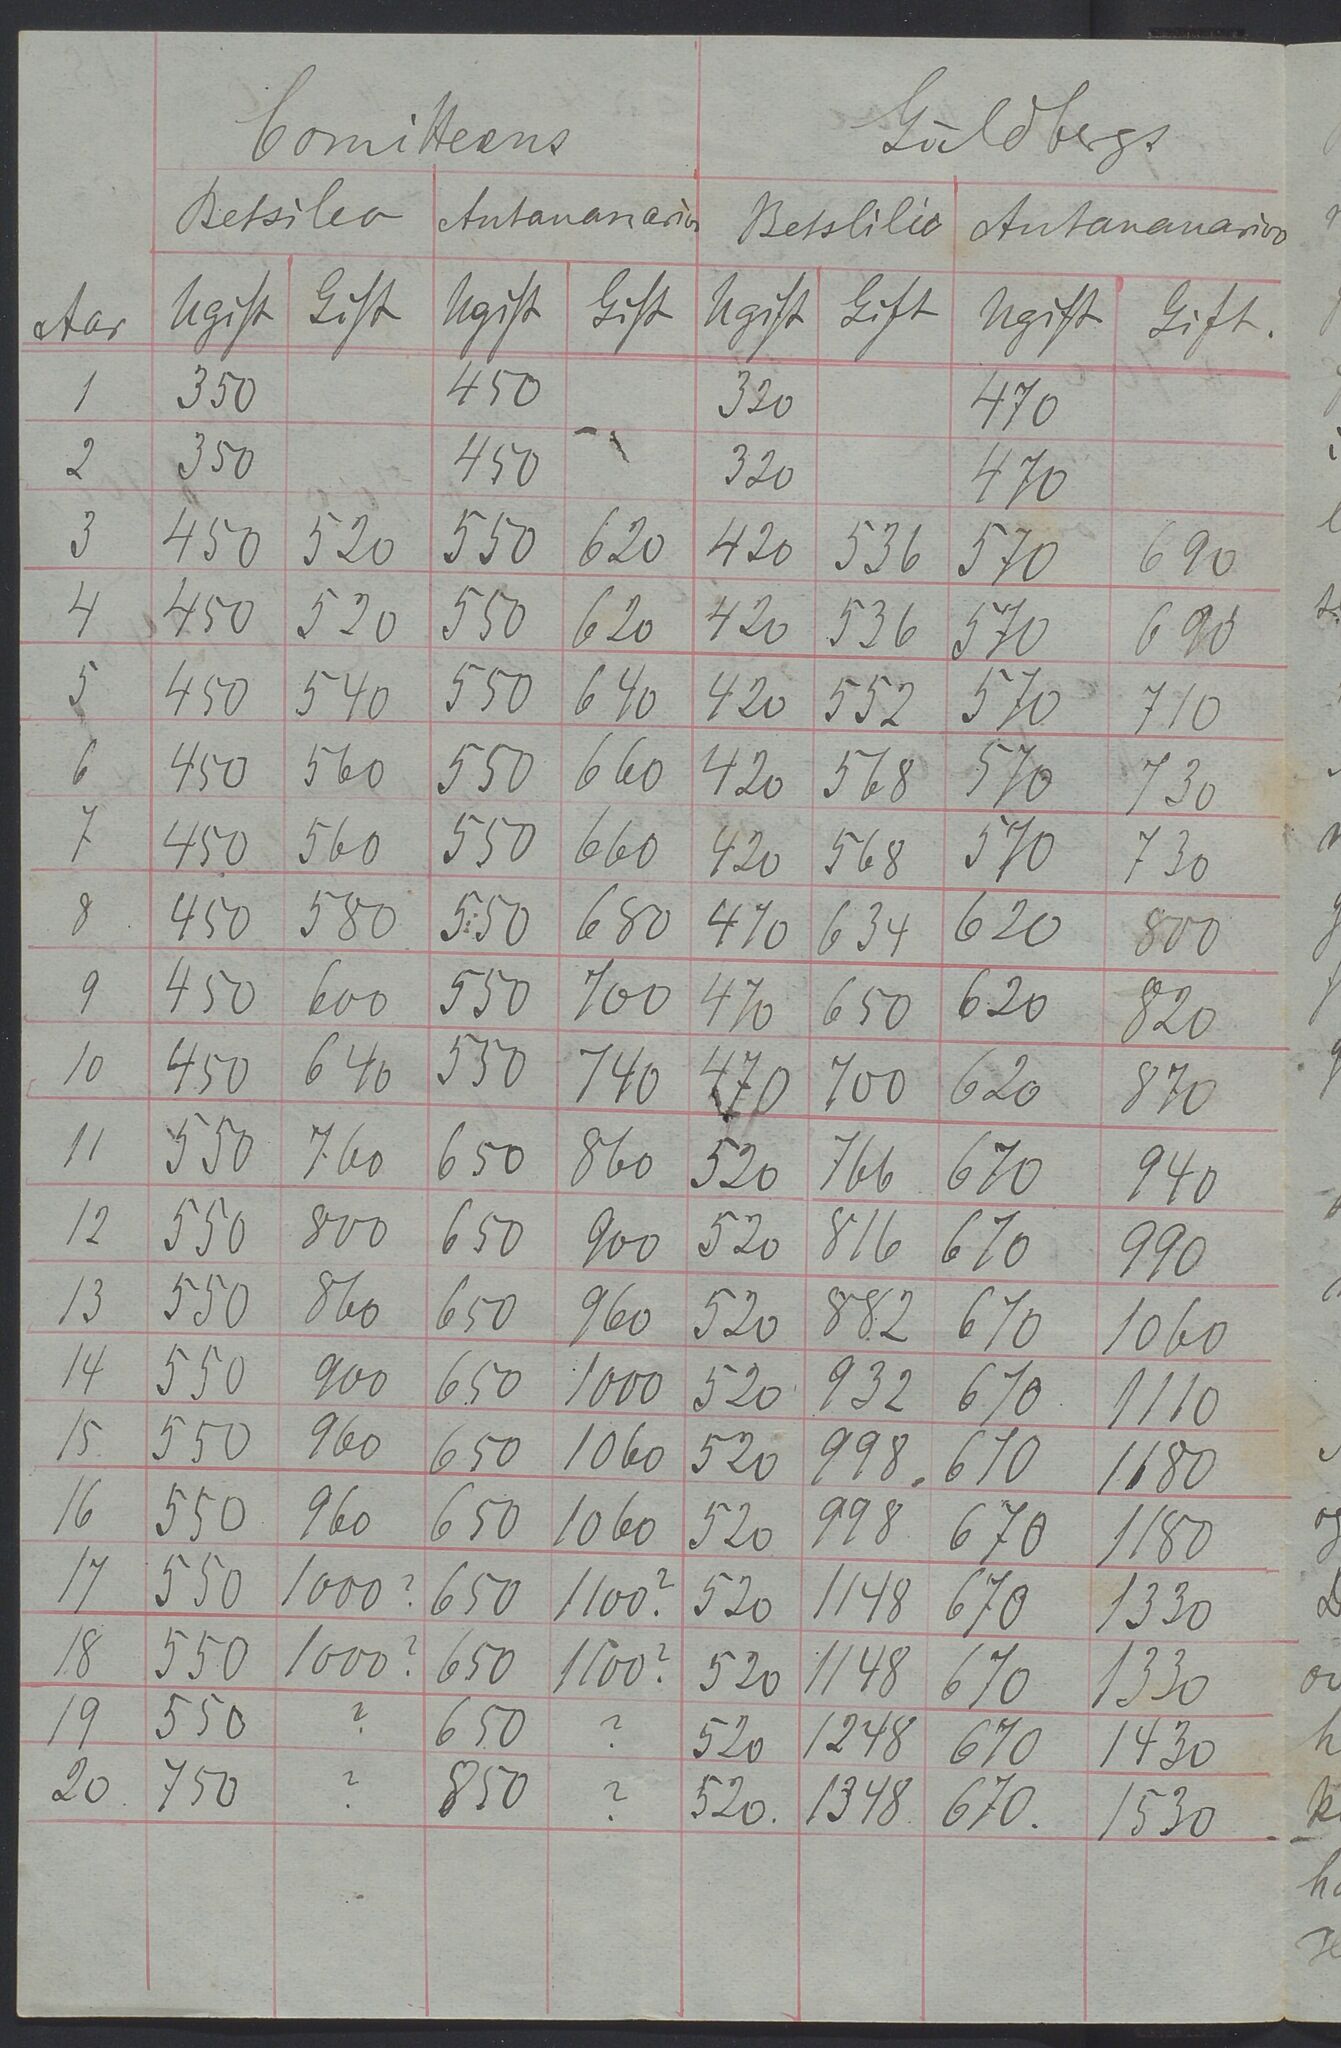 Comitteens Guldbergs
Betsileo Antananarivo Betslilio Antananarivo
Aar Ugift Gift Ugift Gift Ugift Gift Ugift Gift.
1 350 450 320 470
2 350 450 320 470
3 450 520 550 620 420 536 570 690
4 450 520 550 620 420 536 570 690
5 450 540 550 640 420 552 570 710
6 450 560 550 660 420 568 570 730
7 450 560 550 660 420 568 570 730
8 450 580 550 680 470 634 620 800
9 450 600 550 700 470 650 620 820
10 450 640 550 740 470 700 620 870
11 550 760 650 860 520 766 670 940
12 550 800 650 900 520 816 670 990
13 550 860 650 960 520 882 670 1060
14 550 900 650 1000 520 932 670 1110
15 550 960 650 1060 520 998 670 1180
16 550 960 650 1060 520 998 670 1180
17 550 1000? 650 1100? 520 1148 670 1330
18 550 1000? 650 1100? 520 1148 670 1330
19 550 ? 650 ? 520 1248 670 1430
20 750 ? 850 ? 520. 1348 670. 1530